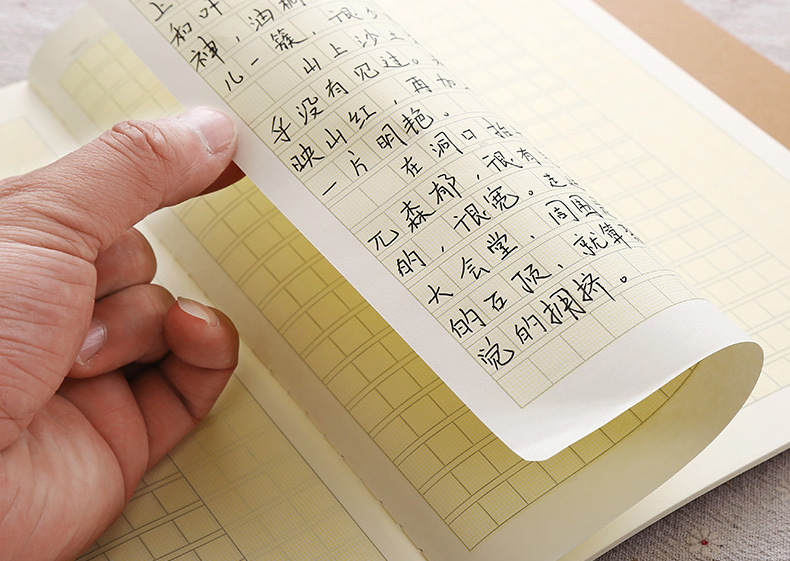 上
和叶
神，油桐
儿一簇，很
山上沙
乎没有见过。
映山红，再加
一片明艳。
在洞口抬
兀森郁，很有
的，很宽。走
大会堂，周围
的石顶，就算
觉的拥挤。